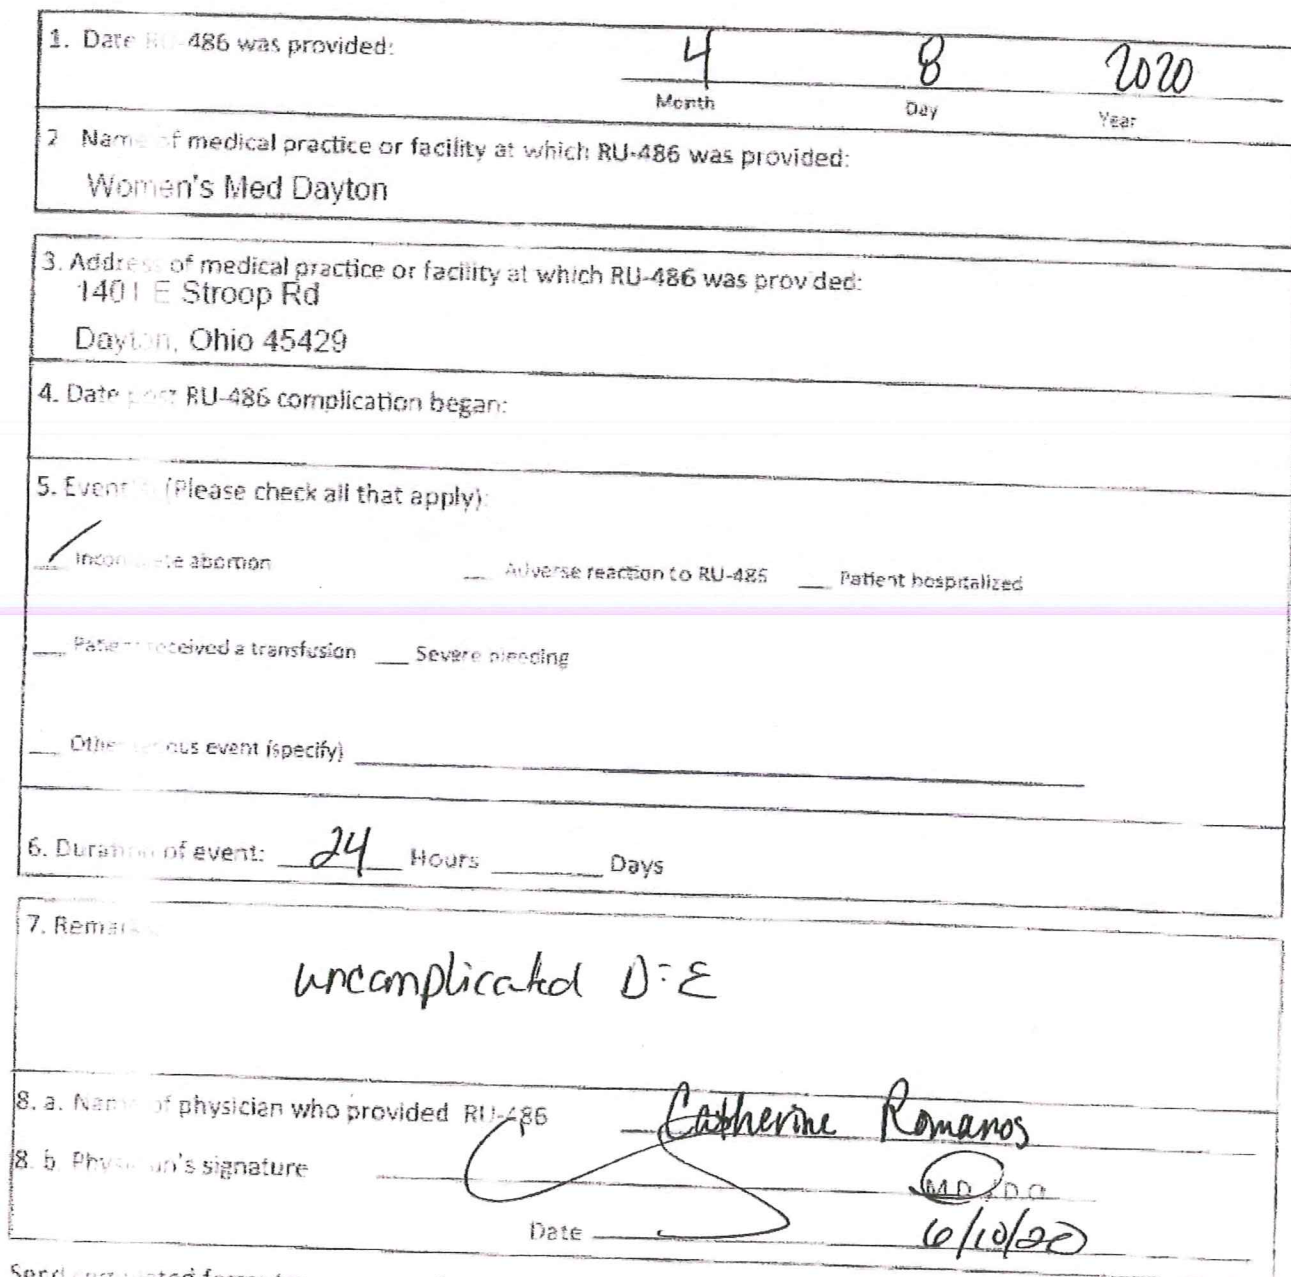 1. Date 486 was provided: 4 8 2020
Month Day Year
2 Name of medical practice or facility at which RU-486 was provided:
Women's Med Dayton
3. Address of medical practice or facility at which RU-486 was provided:
1401 E Stroop Rd
Dayton, Ohio 45429
4. Date post RU-486 complication began:
5. Event (Please check all that apply):
Incomplete abortion __ Adverse reaction to RU-486 __ Patient hospitalized
__ Patient received a transfusion __ Severe bleeding
__ Other serious event (specify)
6. Duration of event: 24 Hours ____ Days
7. Remarks
uncomplicated D:E
8. a. Name of physician who provided RU-486 Catherine Romanos
8. b. Physician's signature MD / D.O.
Date 6/10/20